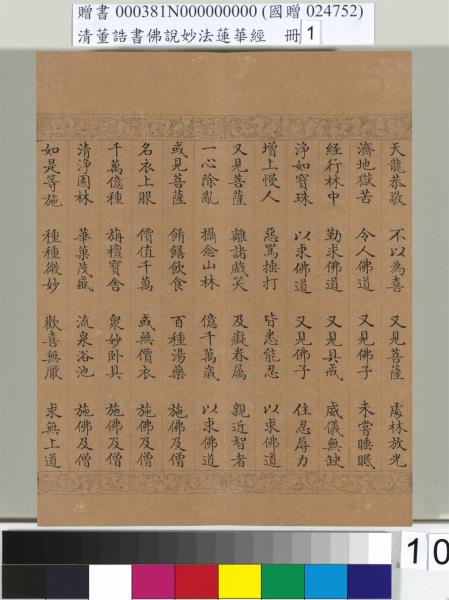 贈書 000381N000000000 (國贈 024752)
清董誥書佛說妙法蓮華經 冊 1
天龍恭敬 不以為喜 又見菩薩 處林放光
濟地獄苦 令人佛道 又見佛子 未嘗睡眠
經行林中 勤求佛道 又見具戒 威儀無缺
淨如寶珠 以求佛道 又見佛子 住忍辱力
增上慢人 惡罵捶打 皆悉能忍 以求佛道
又見菩薩 離諸戲笑 及癡眷屬 親近智者
一心除亂 攝念山林 億千萬歲 以求佛道
或見菩薩 餚饍飲食 百種湯藥 施佛及僧
名衣上服 價值千萬 或無價衣 施佛及僧
千萬億種 旃檀寶舍 眾妙卧具 施佛及僧
清淨園林 華菓茂盛 流泉浴池 施佛及僧
如是等施 種種微妙 歡喜無厭 求無上道
10